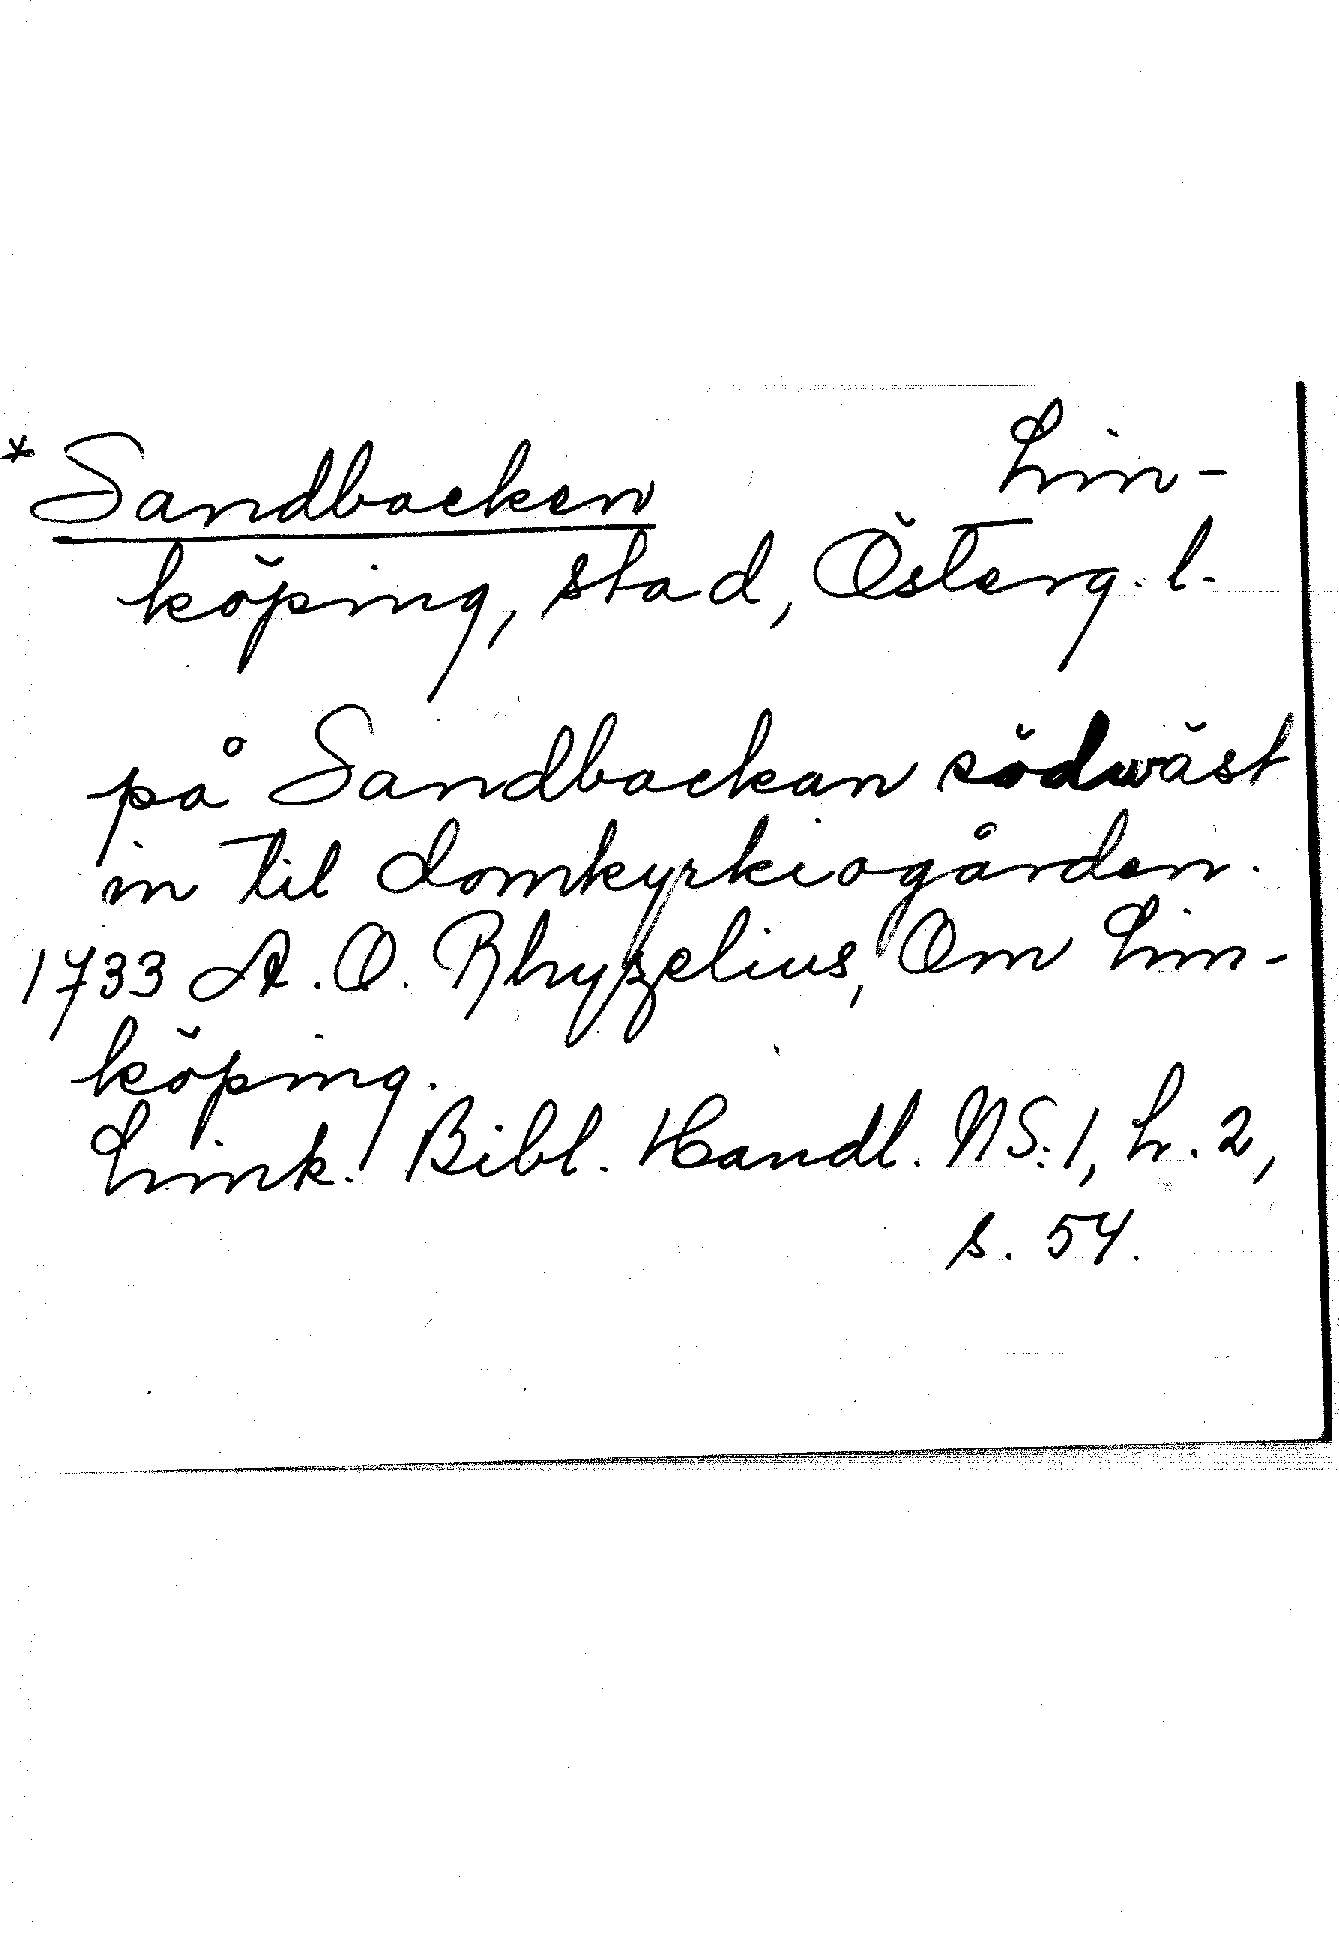 * Sandbacken Lin-
köping, stad, Österg. l.
på Sandbackan södwäst
in til domkyrkiogården.
1733 A. O. Rhyzelius, Om Lin-
köping.
Link. Bibl. Handl. NS:1, h. 2,
s. 54.